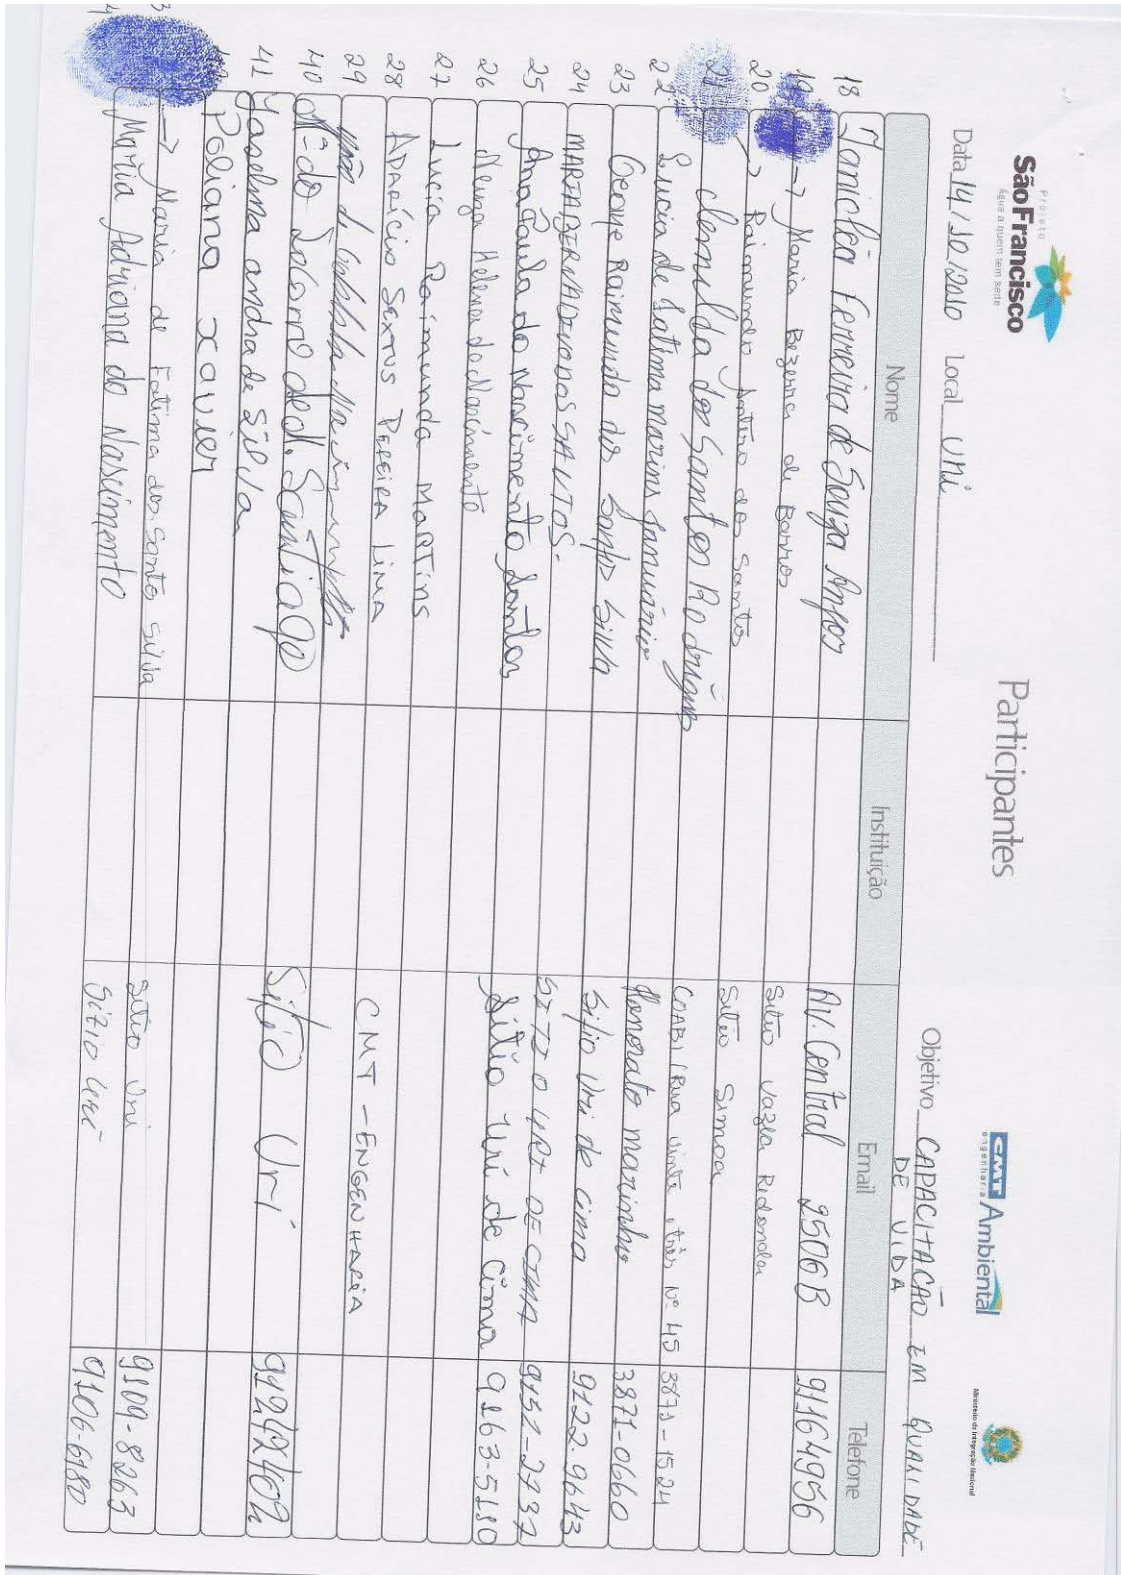 Projeto
São Francisco
água a quem tem sede
Participantes
CMT Ambiental
engenharia
Ministério da Integração Nacional
Data 14/10/2010 Local Uri
Objetivo CAPACITAÇÃO EM QUALIDADE
DE VIDA
Nome Instituição Email Telefone
18 Janicléa Ferreira de Souza Anjos AV. Central 2506B 91164956
19 -> Maria Bezerra de Barros Sitio Vazea Redonda
20 -> Raimundo Antiro dos Santos Sitio Simoa
21 clemilda dos Santos Rodrigues COABI / Rua vinte três Nº 45 3871-1524
22 Lucia de Fatima marins Januário Honorato marinho 3871-0660
23 Geane Raimunda dos Santos Silva Sitio Uri de cima 9122.9643
24 MARTABERNADINODOSSANTOS. SITIO URI DE CIMA 9151-2737
25 Ana Paula do Nascimento Santos Sitio Uri de Cima 9163-5110
26 Neuza Helena do Nascimento
27 Lucia Raimunda MARTINS
28 APARÍCIO SEXTUS PEREIRA LIMA CMT - ENGENHARIA
29
40 Mª do Socorro de N. Santiago Sitio Uri 91242402
41 Joselma andrade Silva
Poliana xavier
3 -> Maria de Fatima dos Santos Silva Sitio Uri 9109-8263
4 Maria Adriana do Nascimento Sitio uri 9106-6180